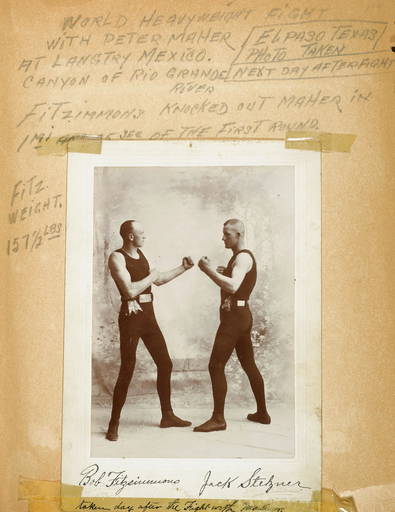 WORLD HEAVYWEIGHT FIGHT
WITH PETER MAHER
AT LANGTRY MEXICO.
CANYON OF RIO GRANDE
RIVER
EL PASO TEXAS
PHOTO TAKEN
NEXT DAY AFTER FIGHT
FITZIMMONS KNOCKED OUT MAHER IN
1 MI 35 SEC OF THE FIRST ROUND
FITZ.
WEIGHT.
157½ LBS
Bob Fitzsimmons Jack Stelzner
taken day after the Fight with